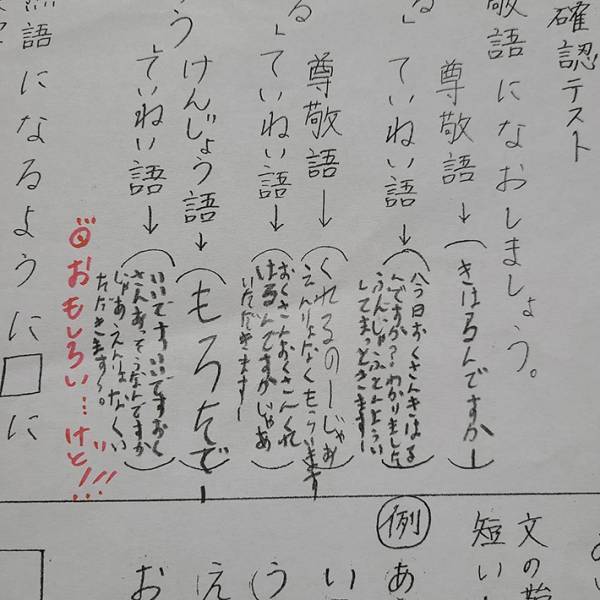 確認テスト
敬語になおしましょう。
尊敬語→(きはるんですかー)
る」ていねい語→
今日おくさんきはる
んですか?わかりました
してまっときます!
尊敬語→
くれるのーじゃあ
えんりょなくもらいます
る」ていねい語→
おくさんおくさんくれ
はるんですかじゃあ
いただきます!
う けんじょう語→(もろたでー)
」ていねい語→
いいですっいいですおく
さんあっそうなんですか
じゃあえんりょなくい
ただきます〜。
◎おもしろい…けど!!!
語になるように□に
文の
短い
例
あ
い
う
え
お